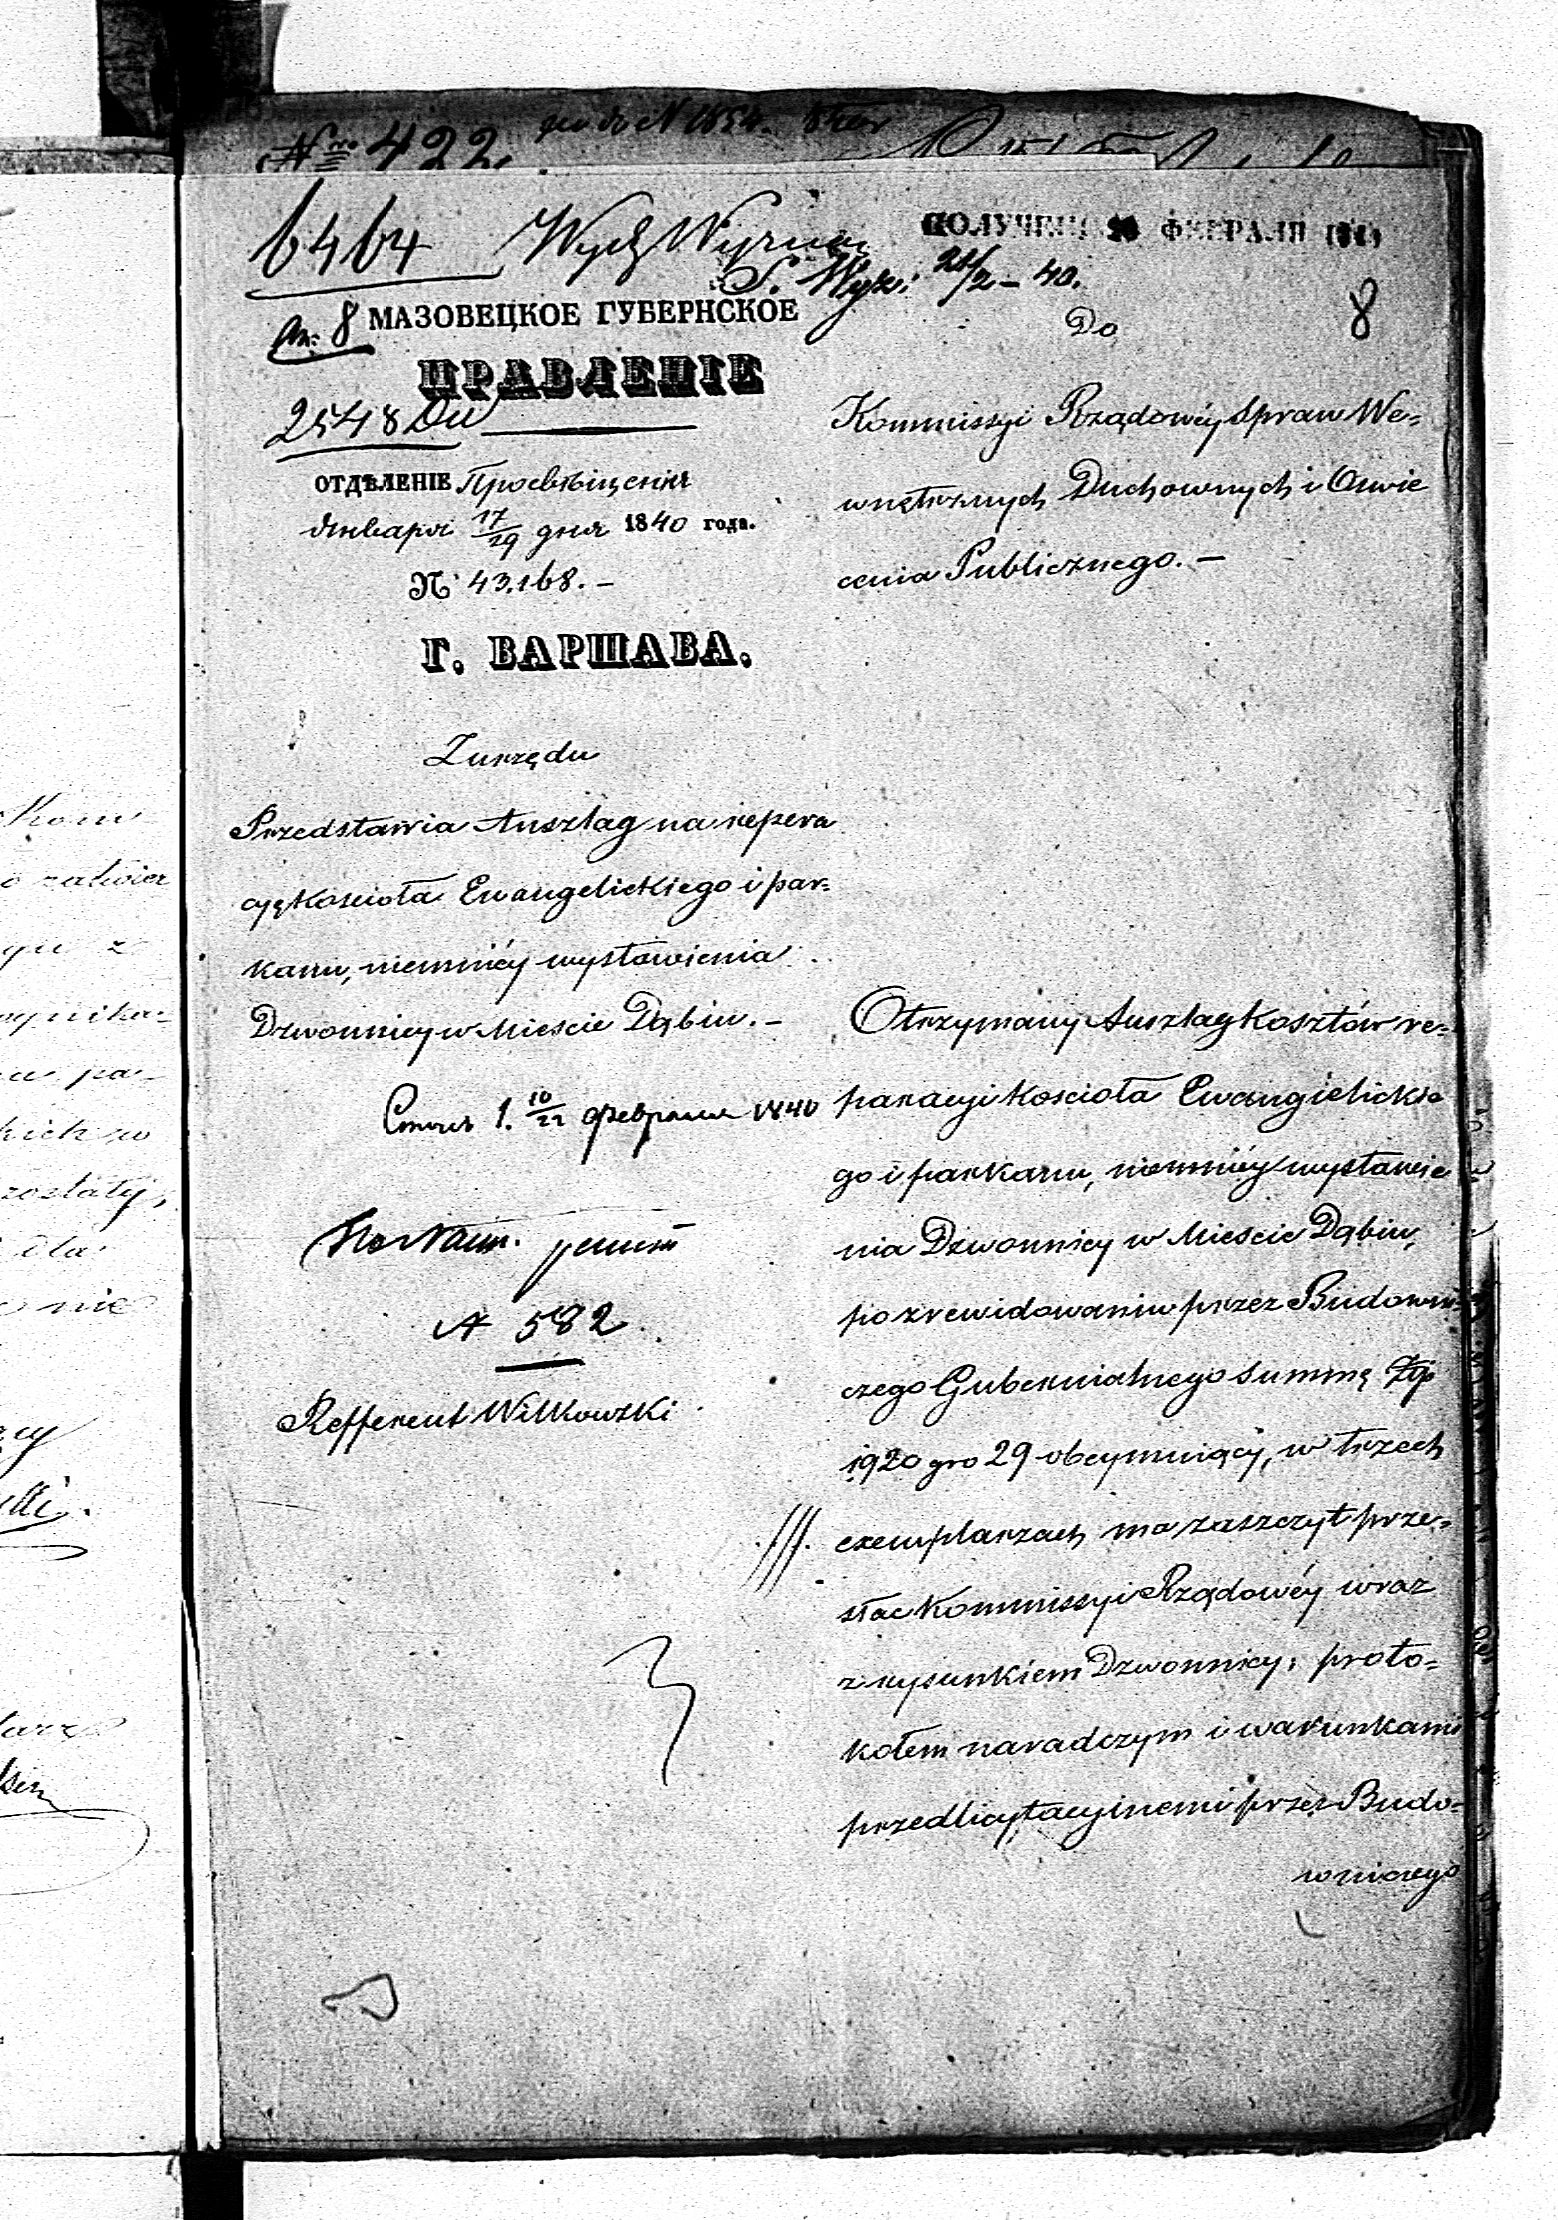 № 422.
6464
ПОЛУЧЕНО ФЕВРАЛЯ
24/2 – 40.
№ 8 МАЗОВЕЦКОЕ ГУБЕРНСКОЕ
ПРАВЛЕНІЕ
2548
ОТДѢЛЕНІЕ Просвѣщенія
Января 17/29 дня 1840 года.
№ 43.168. –
Г. ВАРШАВА.
Z urzędu
Przedstawia Anszlag na repera
cyę Kościoła Ewangelickiego i par=
kanu, niemniéy wystawienia
Dzwonnicy w Mieście Dąbiu. –
10/22 Февраля 1840
A 582
Refferent Witkowski
8
Do
Kommissyi Rządowéy Spraw We=
wnętrznych Duchownych i Oswie
cenia Publicznego. –
Otrzymany Anszlag Kosztów re=
paracyi Kościoła Ewangielickie
go i parkanu, niemniéy wystawie
nia Dzwonnicy w Mieście Dąbiu,
po zrewidowaniu przez Budowni
czego Gubernialnego Summę Złp
1920 gro 29 obeymuiący, w trzech
exemplarzach ma zaszczyt prze=
słac Kommissyi Rządowéy wraz
z rysunkiem Dzwonnicy, proto=
kołem naradczym i warunkami
przedlicytacyinemi przez Budo=
wniczego